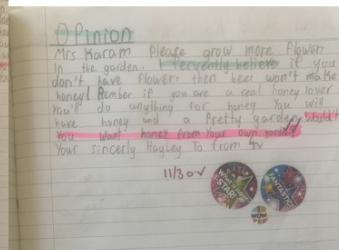 Opinion
Mrs Karam Please grow more flower
In the garden. I fervently believe if you
don't have flower then bees won't make
honey! Rember if you are a real honey lover
You'll do anything for honey You will
have honey and a Pretty garden
You want honey from Your own garden
Your sincerly Hayley To from
11/30
STAR!
WOW